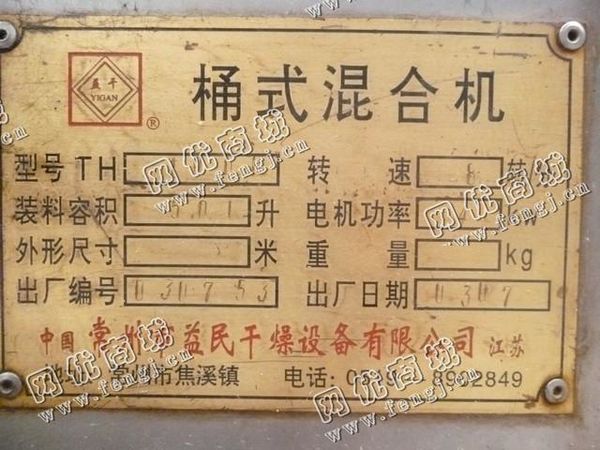 益干
YIGAN
®
桶式混合机
型号TH 转速 8 转/分
装料容积 升 电机功率 kw
外形尺寸 米 重量 kg
出厂编号 030753 出厂日期 0307
中国 常州市益民干燥设备有限公司 江苏
地址：常州市焦溪镇 电话：0519 8902849
网优商城
www.fengj.cn
网优商城
www.fengj.cn
网优商城
www.fengj.cn
网优商城
www.fengj.cn